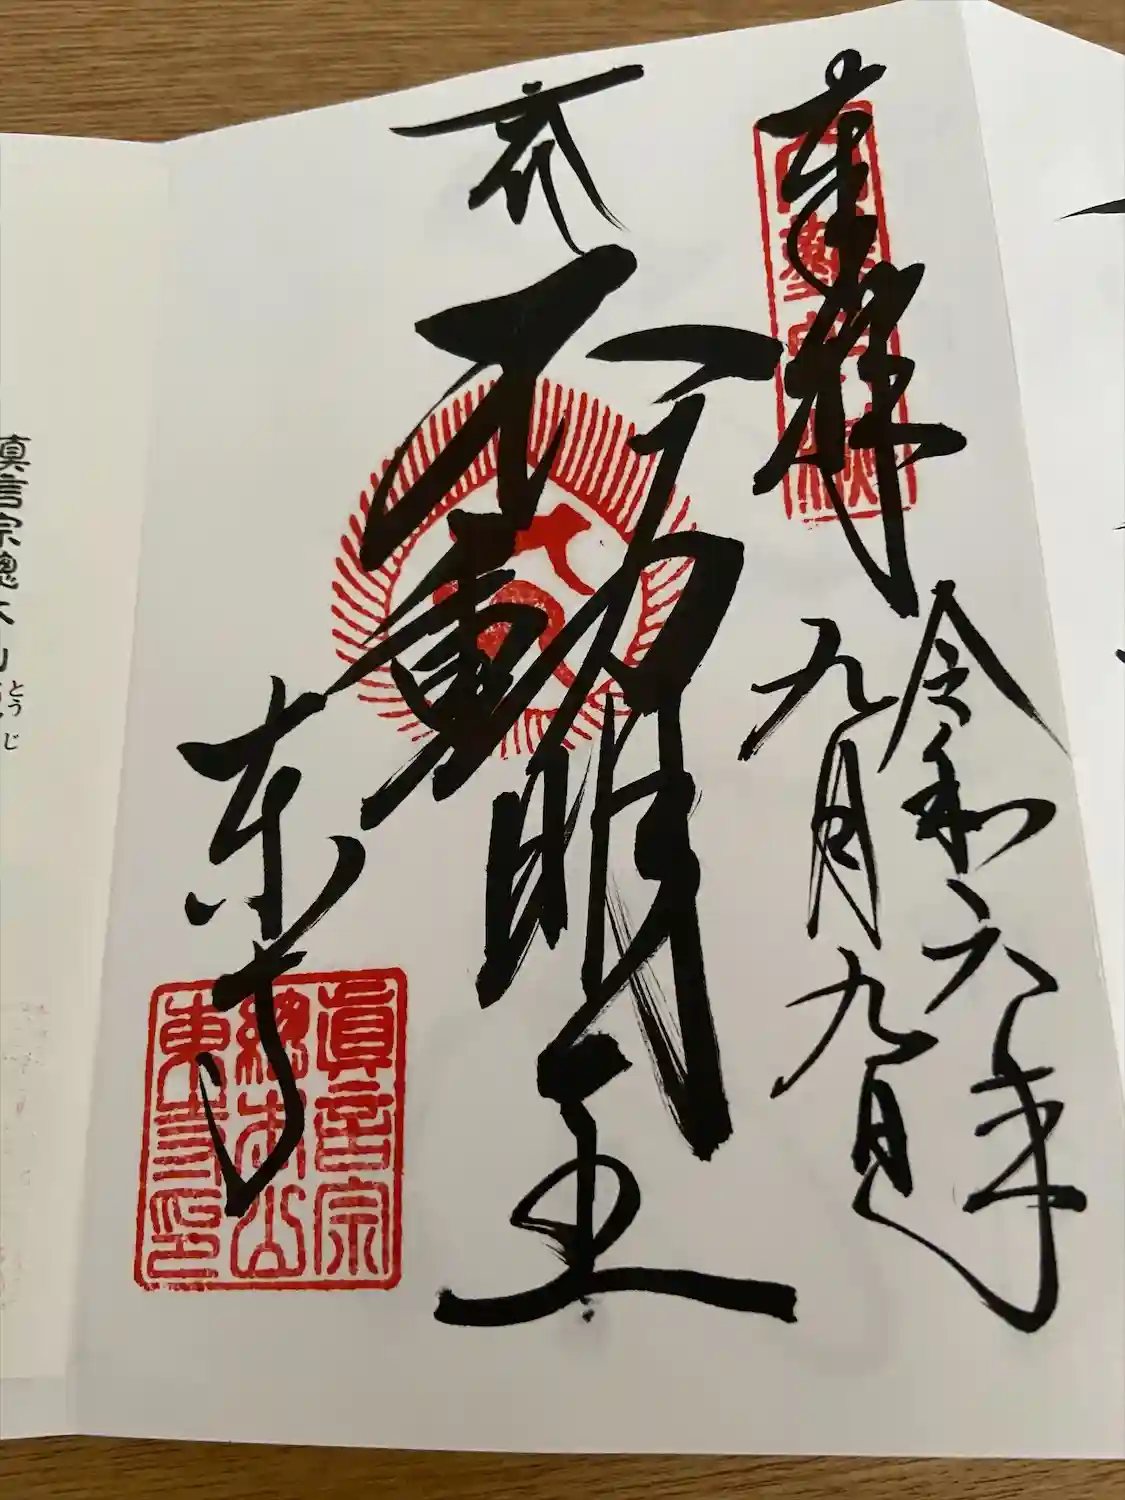 奉拝
令和六年
九月九日
不動明王
東寺
眞言宗
總本山
東寺印
真言宗總本山
とうじ